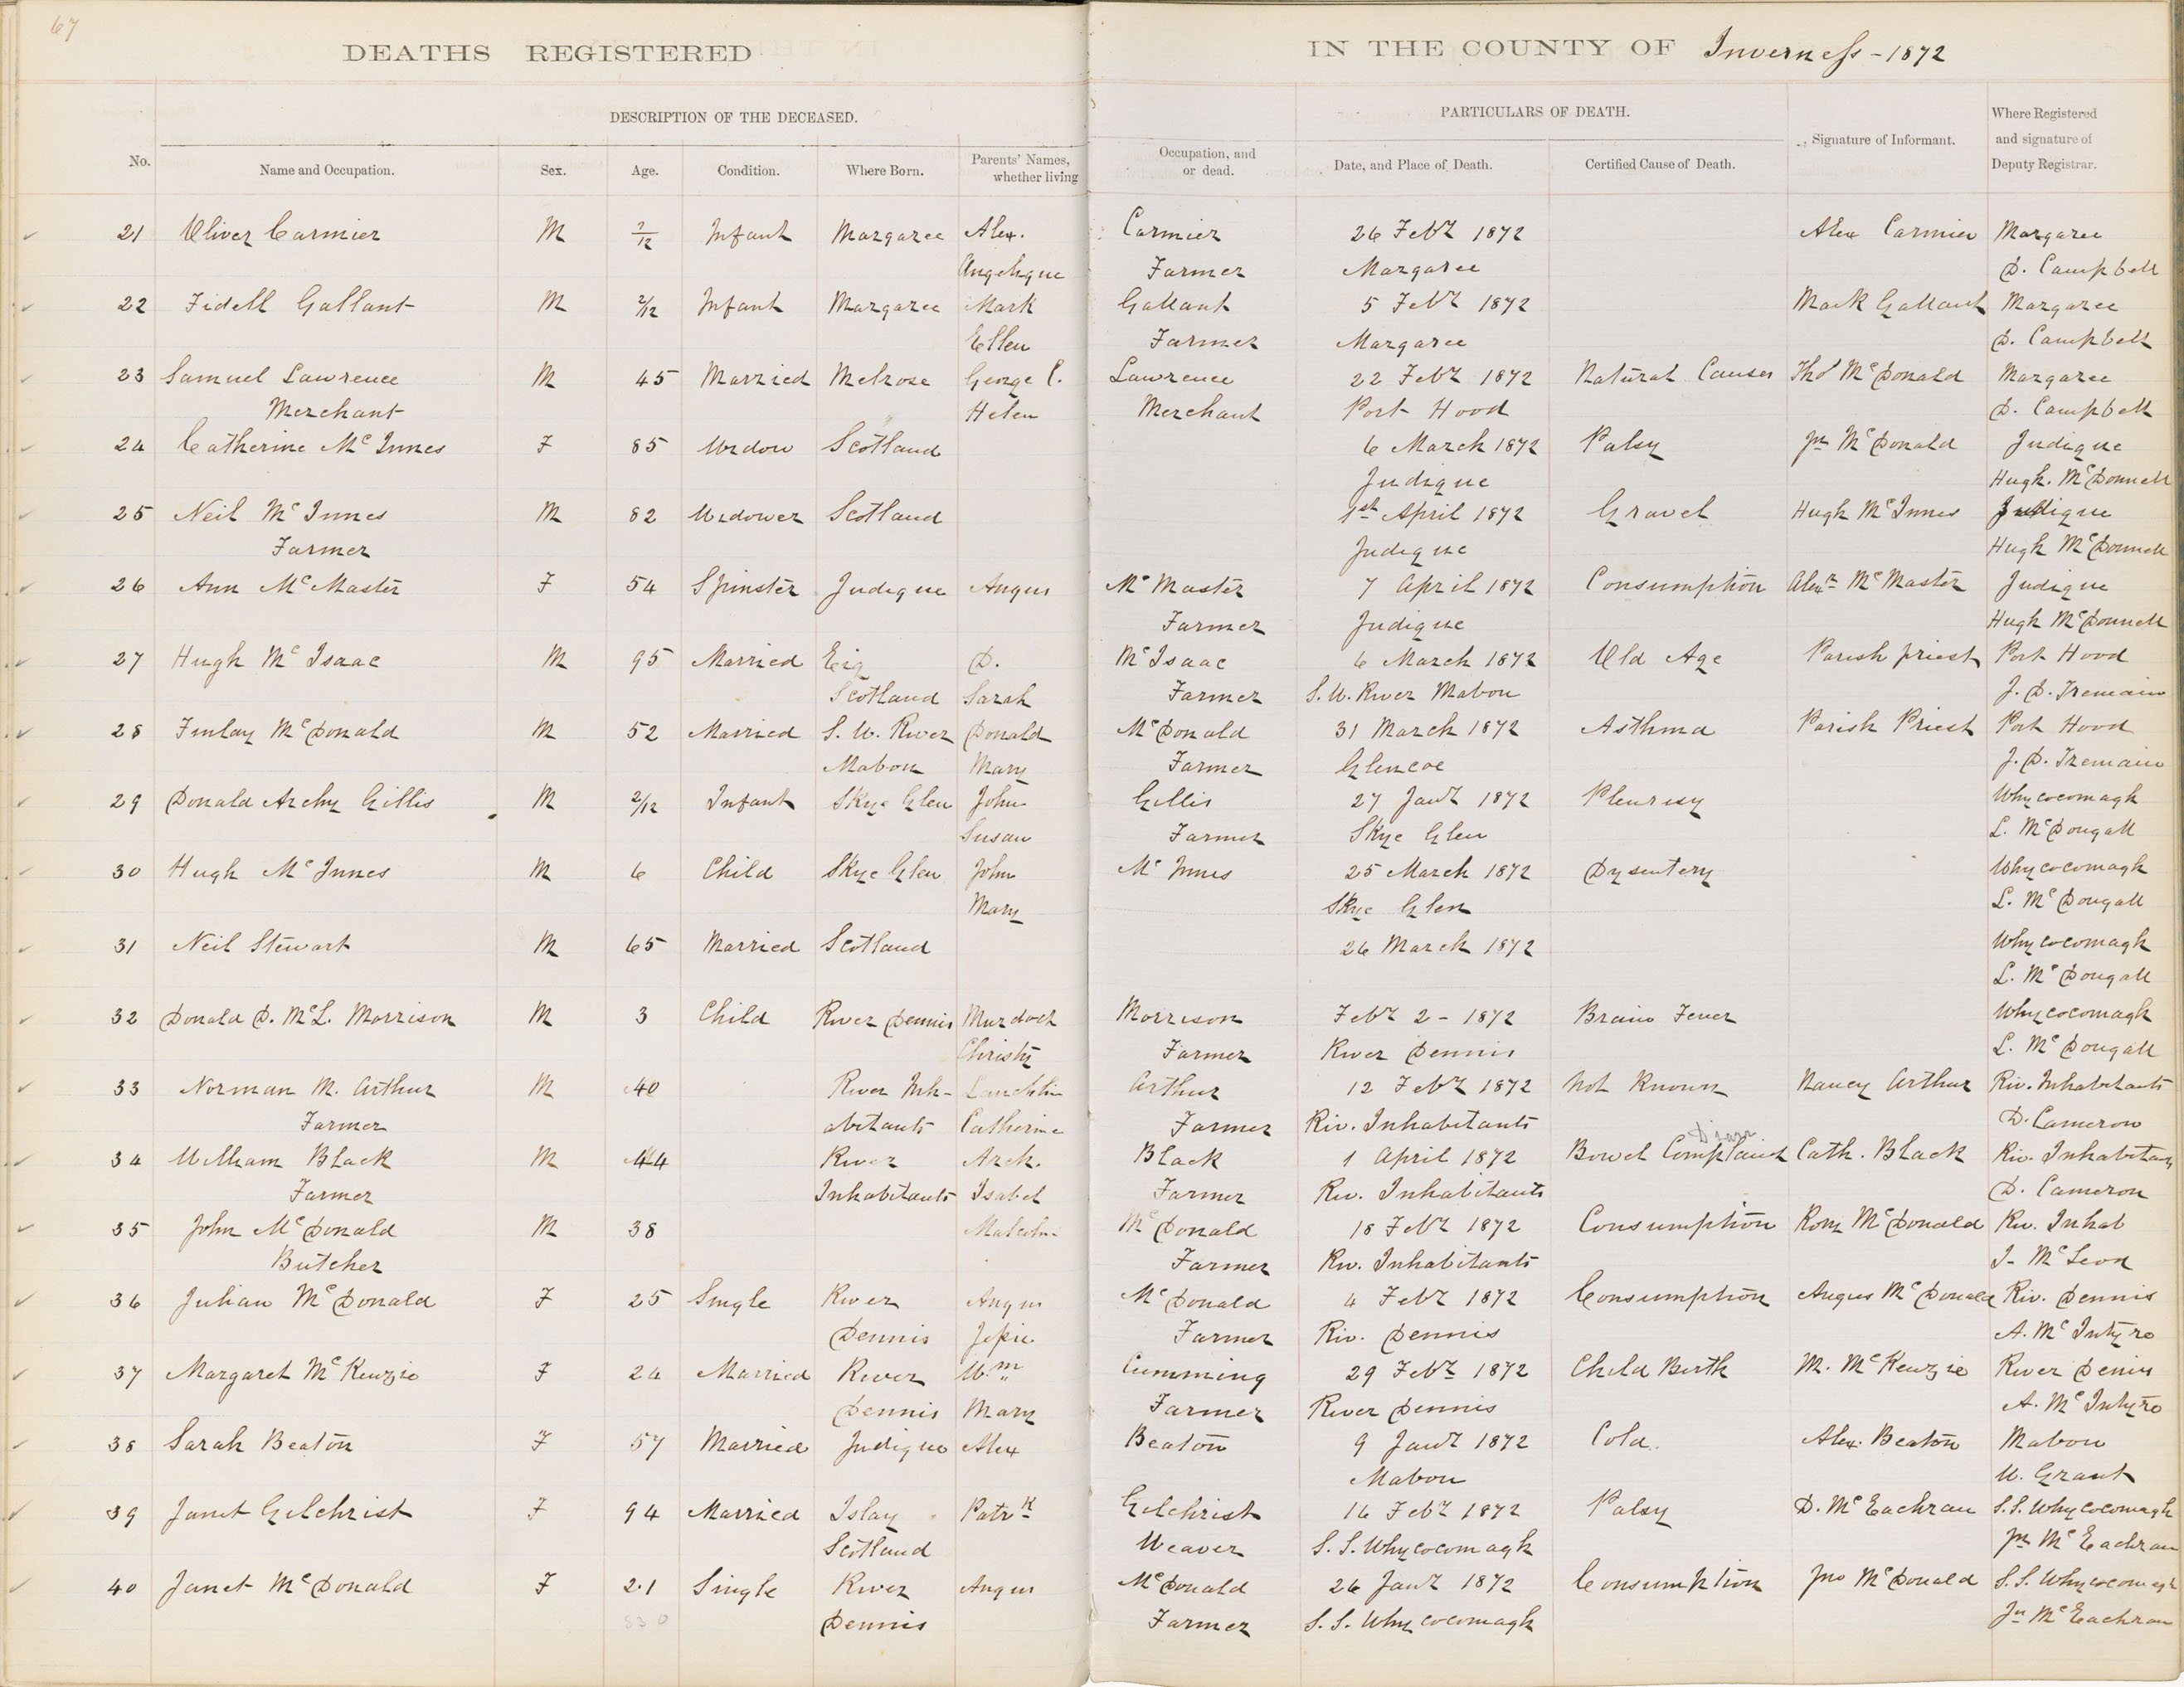 67
DEATHS REGISTERED IN THE COUNTY OF Inverness - 1872
DESCRIPTION OF THE DECEASED. PARTICULARS OF DEATH.
No. Name and Occupation. Sex. Age. Condition. Where Born. Parents' Names, whether living Occupation, and or dead. Date, and Place of Death. Certified Cause of Death. Signature of Informant. Where Registered and signature of Deputy Registrar.
21 Oliver Carmier M 7/12 Infant Margaree Alex. Carmier 26 Febr 1872 Alex Carmier Margaree
Angelique Farmer Margaree D. Campbell
22 Fidell Gallant M 2/12 Infant Margaree Mark Gallant 5 Febr 1872 Mark Gallant Margaree
Ellen Farmer Margaree D. Campbell
23 Samuel Lawrence M 45 Married Melrose George C. Lawrence 22 Febr 1872 Natural Causes Thos McDonald Margaree
Merchant Helen Merchant Port Hood D. Campbell
24 Catherine McInnes F 85 Widow Scotland 6 March 1872 Palsy Jn McDonald Judique
Judique Hugh. McDonnell
25 Neil McInnes M 82 Widower Scotland 1st April 1872 Gravel Hugh McInnes Judique
Farmer Judique Hugh McDonnell
26 Ann McMaster F 54 Spinster Judique Angus McMaster 7 April 1872 Consumption Alexr McMaster Judique
Farmer Judique Hugh McDonnell
27 Hugh McIsaac M 95 Married Eig D. McIsaac 6 March 1872 Old Age Parish priest Port Hood
Scotland Sarah Farmer S. W. River Mabou J. D. Tremain
28 Finlay McDonald M 52 Married S. W. River Donald McDonald 31 March 1872 Asthma Parish Priest Port Hood
Mabou Mary Farmer Glencoe J. D. Tremain
29 Donald Archy Gillis M 2/12 Infant Skye Glen John Gillis 27 Janr 1872 Pleurisy Whycocomagh
Susan Farmer Skye Glen L. McDougall
30 Hugh McInnes M 6 Child Skye Glen John McInnes 25 March 1872 Dysentery Whycocomagh
Mary Skye Glen L. McDougall
31 Neil Stewart M 65 Married Scotland 26 March 1872 Whycocomagh
L. McDougall
32 Donald D. McL. Morrison M 3 Child River Dennis Murdoch Morrison Febr 2 - 1872 Brain Fever Whycocomagh
Christy Farmer River Dennis L. McDougall
33 Norman M. Arthur M 40 River Inh- Lauchlin Arthur 12 Febr 1872 Not Known Nancy Arthur Riv. Inhabitants
Farmer abitants Catherine Farmer Riv. Inhabitants D. Cameron
Diarr
34 William Black M 44 River Arch. Black 1 April 1872 Bowel Complaint Cath. Black Riv. Inhabitants
Farmer Inhabitants Isabel Farmer Riv. Inhabitants D. Cameron
35 John McDonald M 38 Malcolm McDonald 18 Febr 1872 Consumption Rory McDonald Riv. Inhab
Butcher Farmer Riv. Inhabitants J- McLeod
36 Julian McDonald F 25 Single River Angus McDonald 4 Febr 1872 Consumption Angus McDonald Riv. Dennis
Dennis Jessie Farmer Riv. Dennis A. McIntyre
37 Margaret McKenzie F 24 Married River Wm Cumming 29 Febr 1872 Child Birth M. McKenzie River Denis
Dennis Mary Farmer River Dennis A. McIntyre
38 Sarah Beaton F 57 Married Judique Alex Beaton 9 Janr 1872 Cold. Alex. Beaton Mabou
Mabou W. Grant
39 Janet Gilchrist F 94 Married Islay Patrk Gilchrist 16 Febr 1872 Palsy D. McEachran S.S. Whycocomagh
Scotland Weaver S. S. Whycocomagh Jn McEachran
40 Janet McDonald F 21 Single River Angus McDonald 26 Janr 1872 Consumption Jno McDonald S.S. Whycocomagh
830 Dennis Farmer S. S. Whycocomagh Jn McEachran